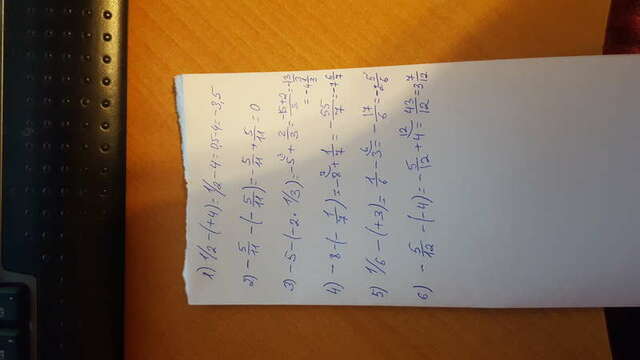 1) 1/2 - (+4) = 1/2 - 4 = 0,5-4 = -3,5
2) - 5/11 - (- 5/11) = - 5/11 + 5/11 = 0
3) -5 - (-2 · 1/3) = -5 3 + 2/3 = -15+2/3 = -13/3
= -4 1/3
4) -8 - (- 1/7) = -8 7 + 1/7 = - 55/7 = -7 6/7
5) 1/6 - (+3) = 1/6 - 3 6 = - 17/6 = -2 5/6
6) - 5/12 - (-4) = - 5/12 + 4 12 = 43/12 = 3 7/12